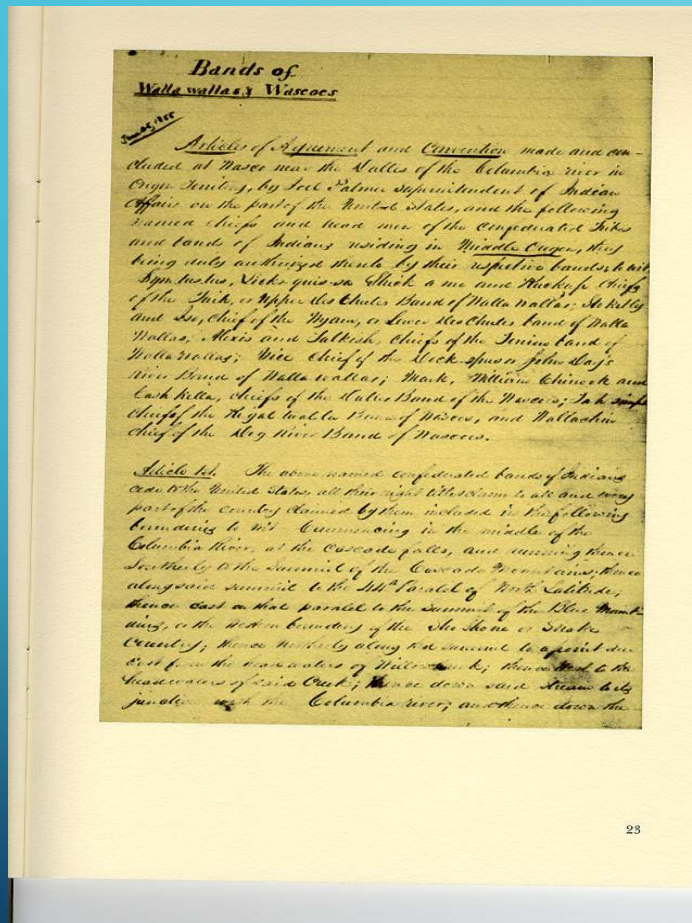 Bands of
Walla wallas & Wascoes
June 25, 1855
Articles of Agreement and Convention made and con-
cluded at Wasco near the Dalles of the Columbia river in
Oregon Territory, by Joel Palmer Superintendent of Indian
Affairs on the part of the United States, and the following
named chiefs and head men of the Confederated Tribes
and bands of Indians residing in Middle Oregon, they
being duly authorized thereto by their respective bands, to wit,
Symtustus, Locks quis sa Shick a me and Kuckup Chiefs
of the Taih, or Upper Des Chutes Band of Walla Wallas;
and Iso, Chiefs of the Wyam, or Lower Des Chutes band of Walla
Wallas; Alexis and Talkish, Chiefs of the Tenino band of
Walla wallas; Yice Chief of the Dock spus or John Day's
River Band of Walla wallas; Mark, William Chinook and
Cash Kella, Chiefs of the Dalles Band of the Wascoes;
Chief of the Band of Wascoes, and Wallachin
Chief of the Dog River Band of Wascoes.
Article 1st. The above named confederated bands of Indians
cede to the United States, all their right title & claim to all and every
part of the country claimed by them included in the following
boundaries to wit Commencing in the middle of the
Columbia River, at the Cascade falls, and running thence
Southerly to the Summit of the Cascade Mountains; thence
along said summit to the 44th Paralel of North Latitude;
thence east on that paralel to the Summit of the Blue Mount-
ains, or the western boundary of the Sho Shone or Snake
Country; thence Northerly along that summit to a point due
East from the head waters of Willow Creek; thence West to the
head waters of said Creek; thence down said stream to its
junction with the Columbia river; and thence down the
23